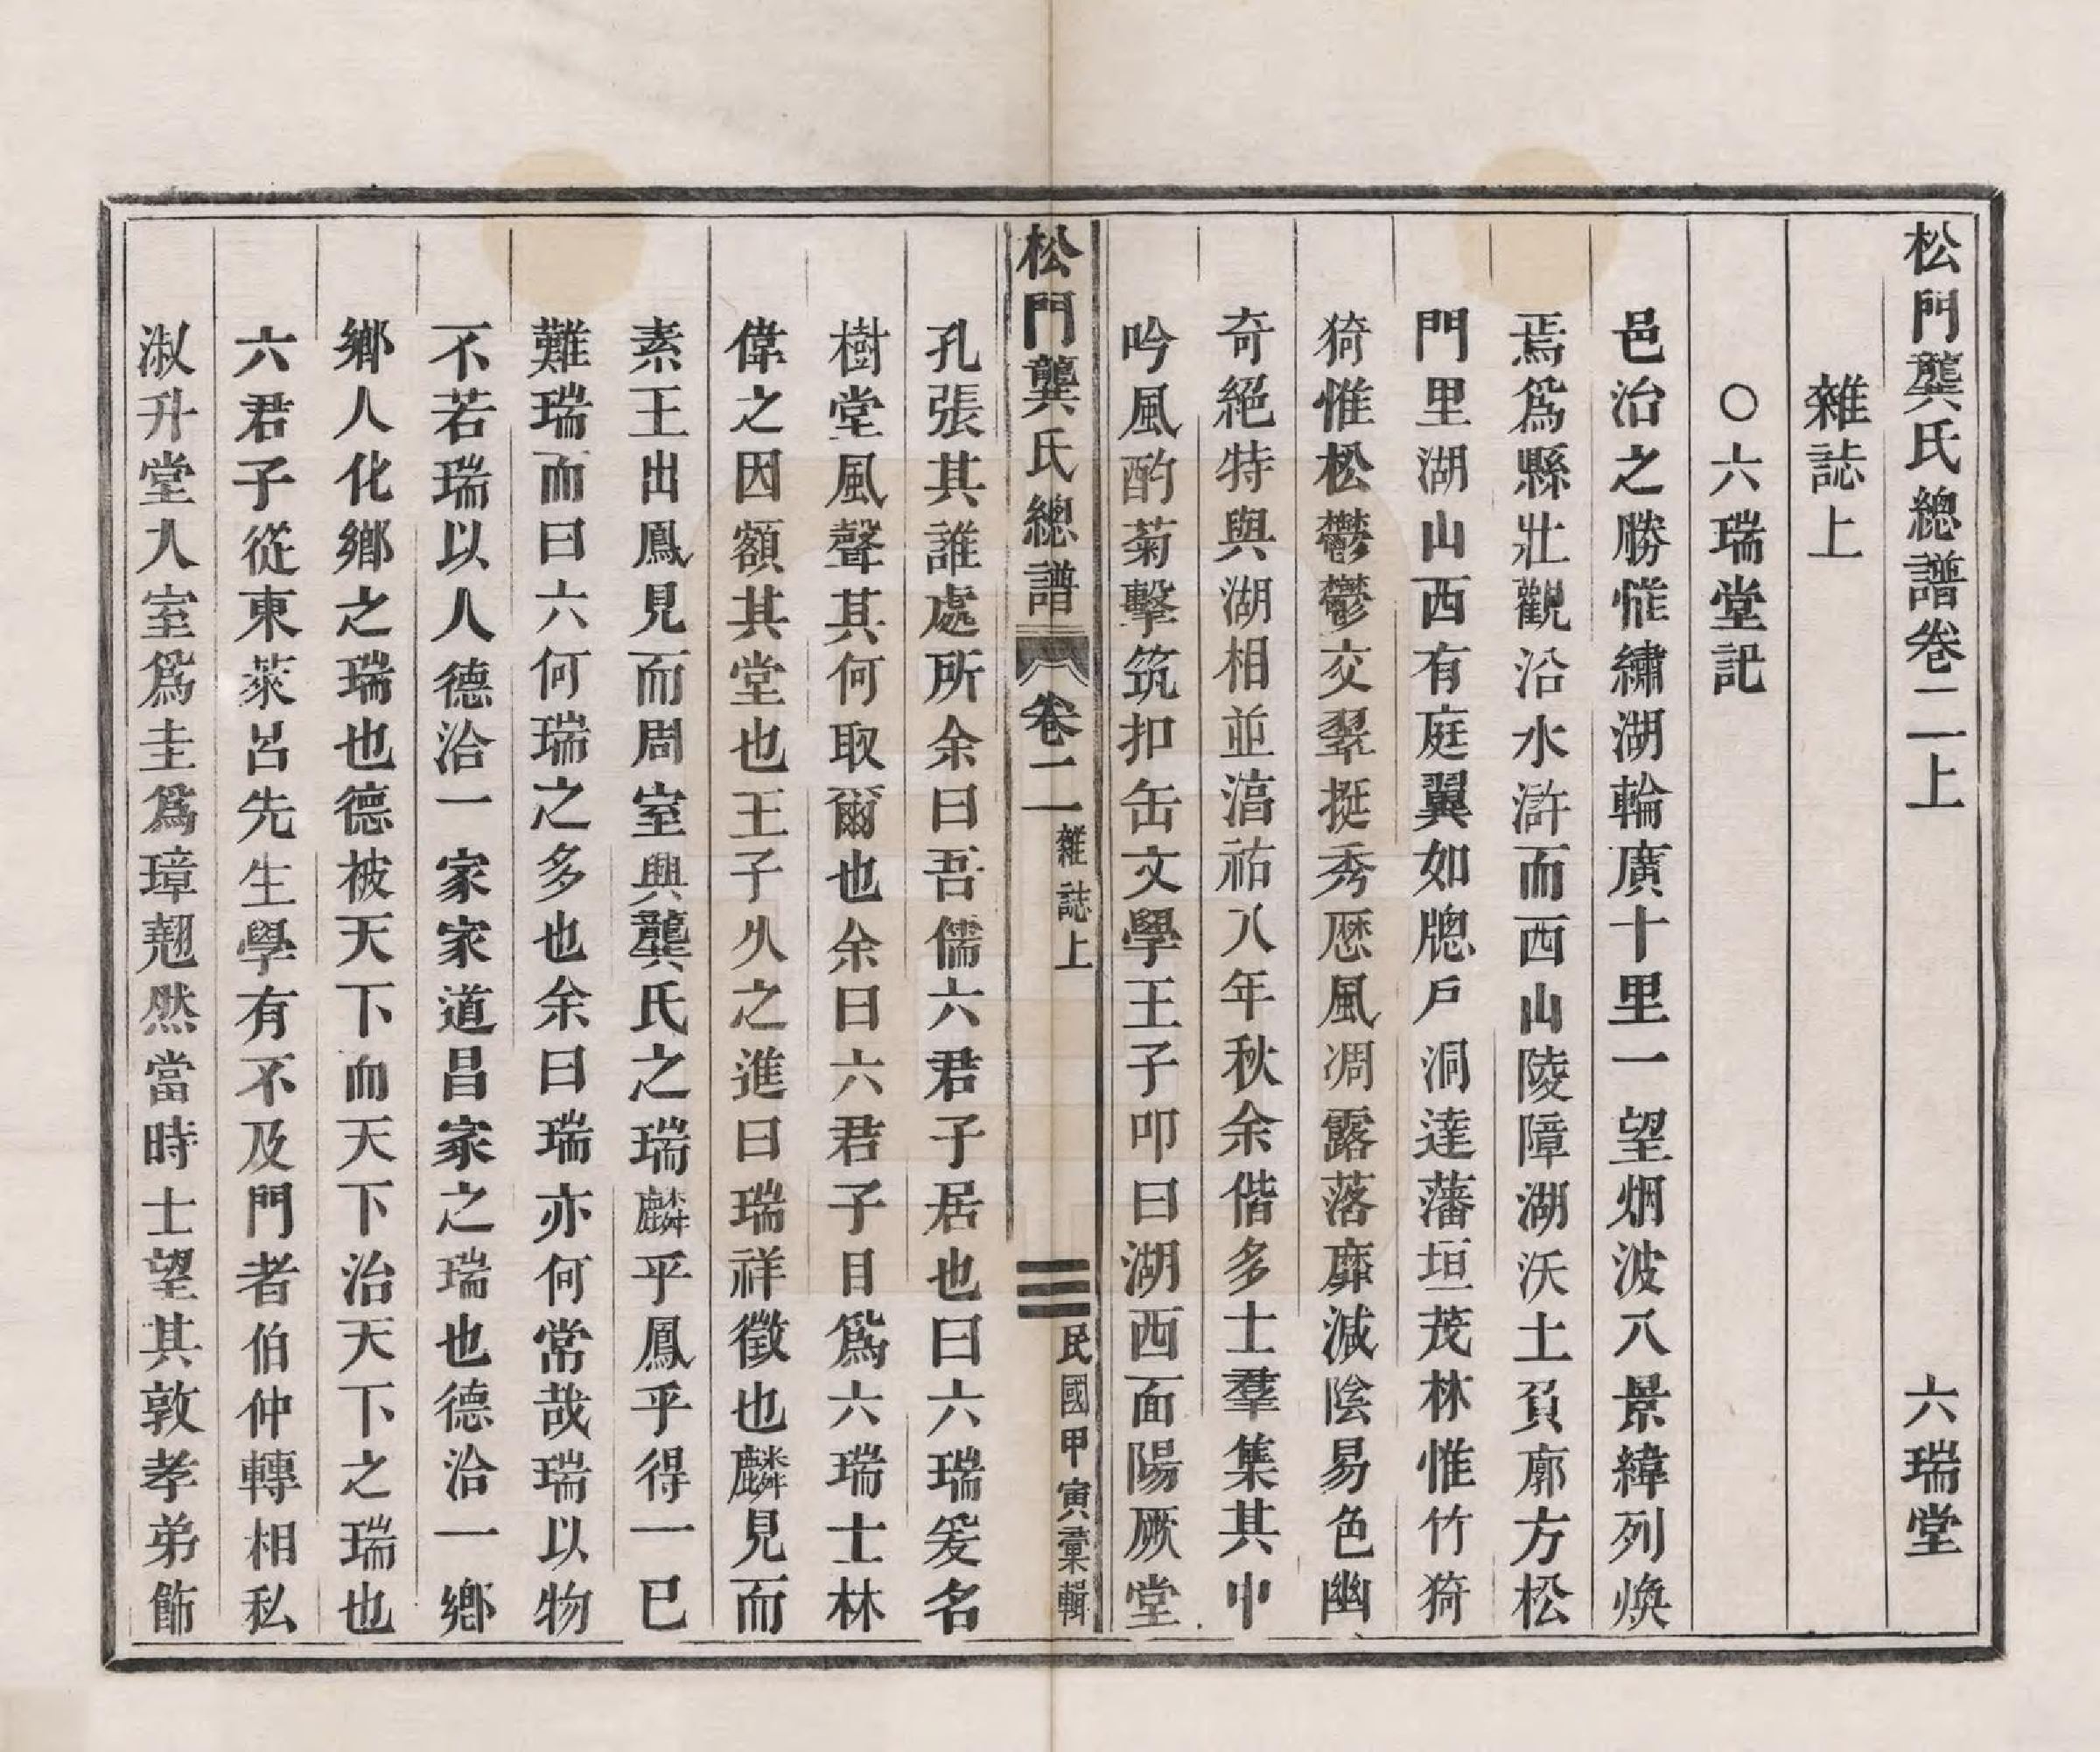 松門龔氏總譜卷二上　六瑞堂
雜誌上
○六瑞堂記
邑治之勝惟繡湖輪廣十里一望烟波八景緯列煥
焉爲縣壯觀沿水滸而西山陵障湖沃土負廓方松
門里湖山西有庭翼如牕戶洞達藩垣茂林惟竹猗
猗惟松鬱鬱交翠挺秀歷風凋露落靡減陰易色幽
奇絕特與湖相並湻祐八年秋余偕多士羣集其中
吟風酌菊擊筑扣缶文學王子叩曰湖西面陽厥堂
松門龔氏總譜　卷二　雜誌上　三　民國甲寅彙輯
孔張其誰處所余曰吾儒六君子居也曰六瑞爰名
樹堂風聲其何取爾也余曰六君子目爲六瑞士林
偉之因額其堂也王子久之進曰瑞祥徵也麟見而
素王出鳳見而周室興龔氏之瑞麟乎鳳乎得一已
難瑞而曰六何瑞之多也余曰瑞亦何常哉瑞以物
不若瑞以人德洽一家家道昌家之瑞也德洽一鄉
鄉人化鄉之瑞也德被天下而天下治天下之瑞也
六君子從東萊呂先生學有不及門者伯仲轉相私
淑升堂入室爲圭爲璋翹然當時士望其敦孝弟飭